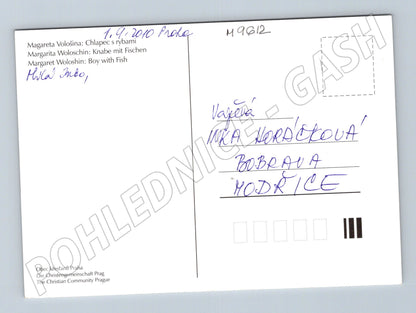 1.4.2010 Praha
M9612
Magareta Vološina: Chlapec s rybami
Margarita Woloschin: Knabe mit Fischen
Margaret Woloshin: Boy with Fish
Milá
Vážená
HORÁČKOVÁ
BOBRAVA
MODŘICE
POHLEDNICE - GASH
Obec křesťanů Praha
Die Christengemeinschaft Prag
The Christian Community Prague